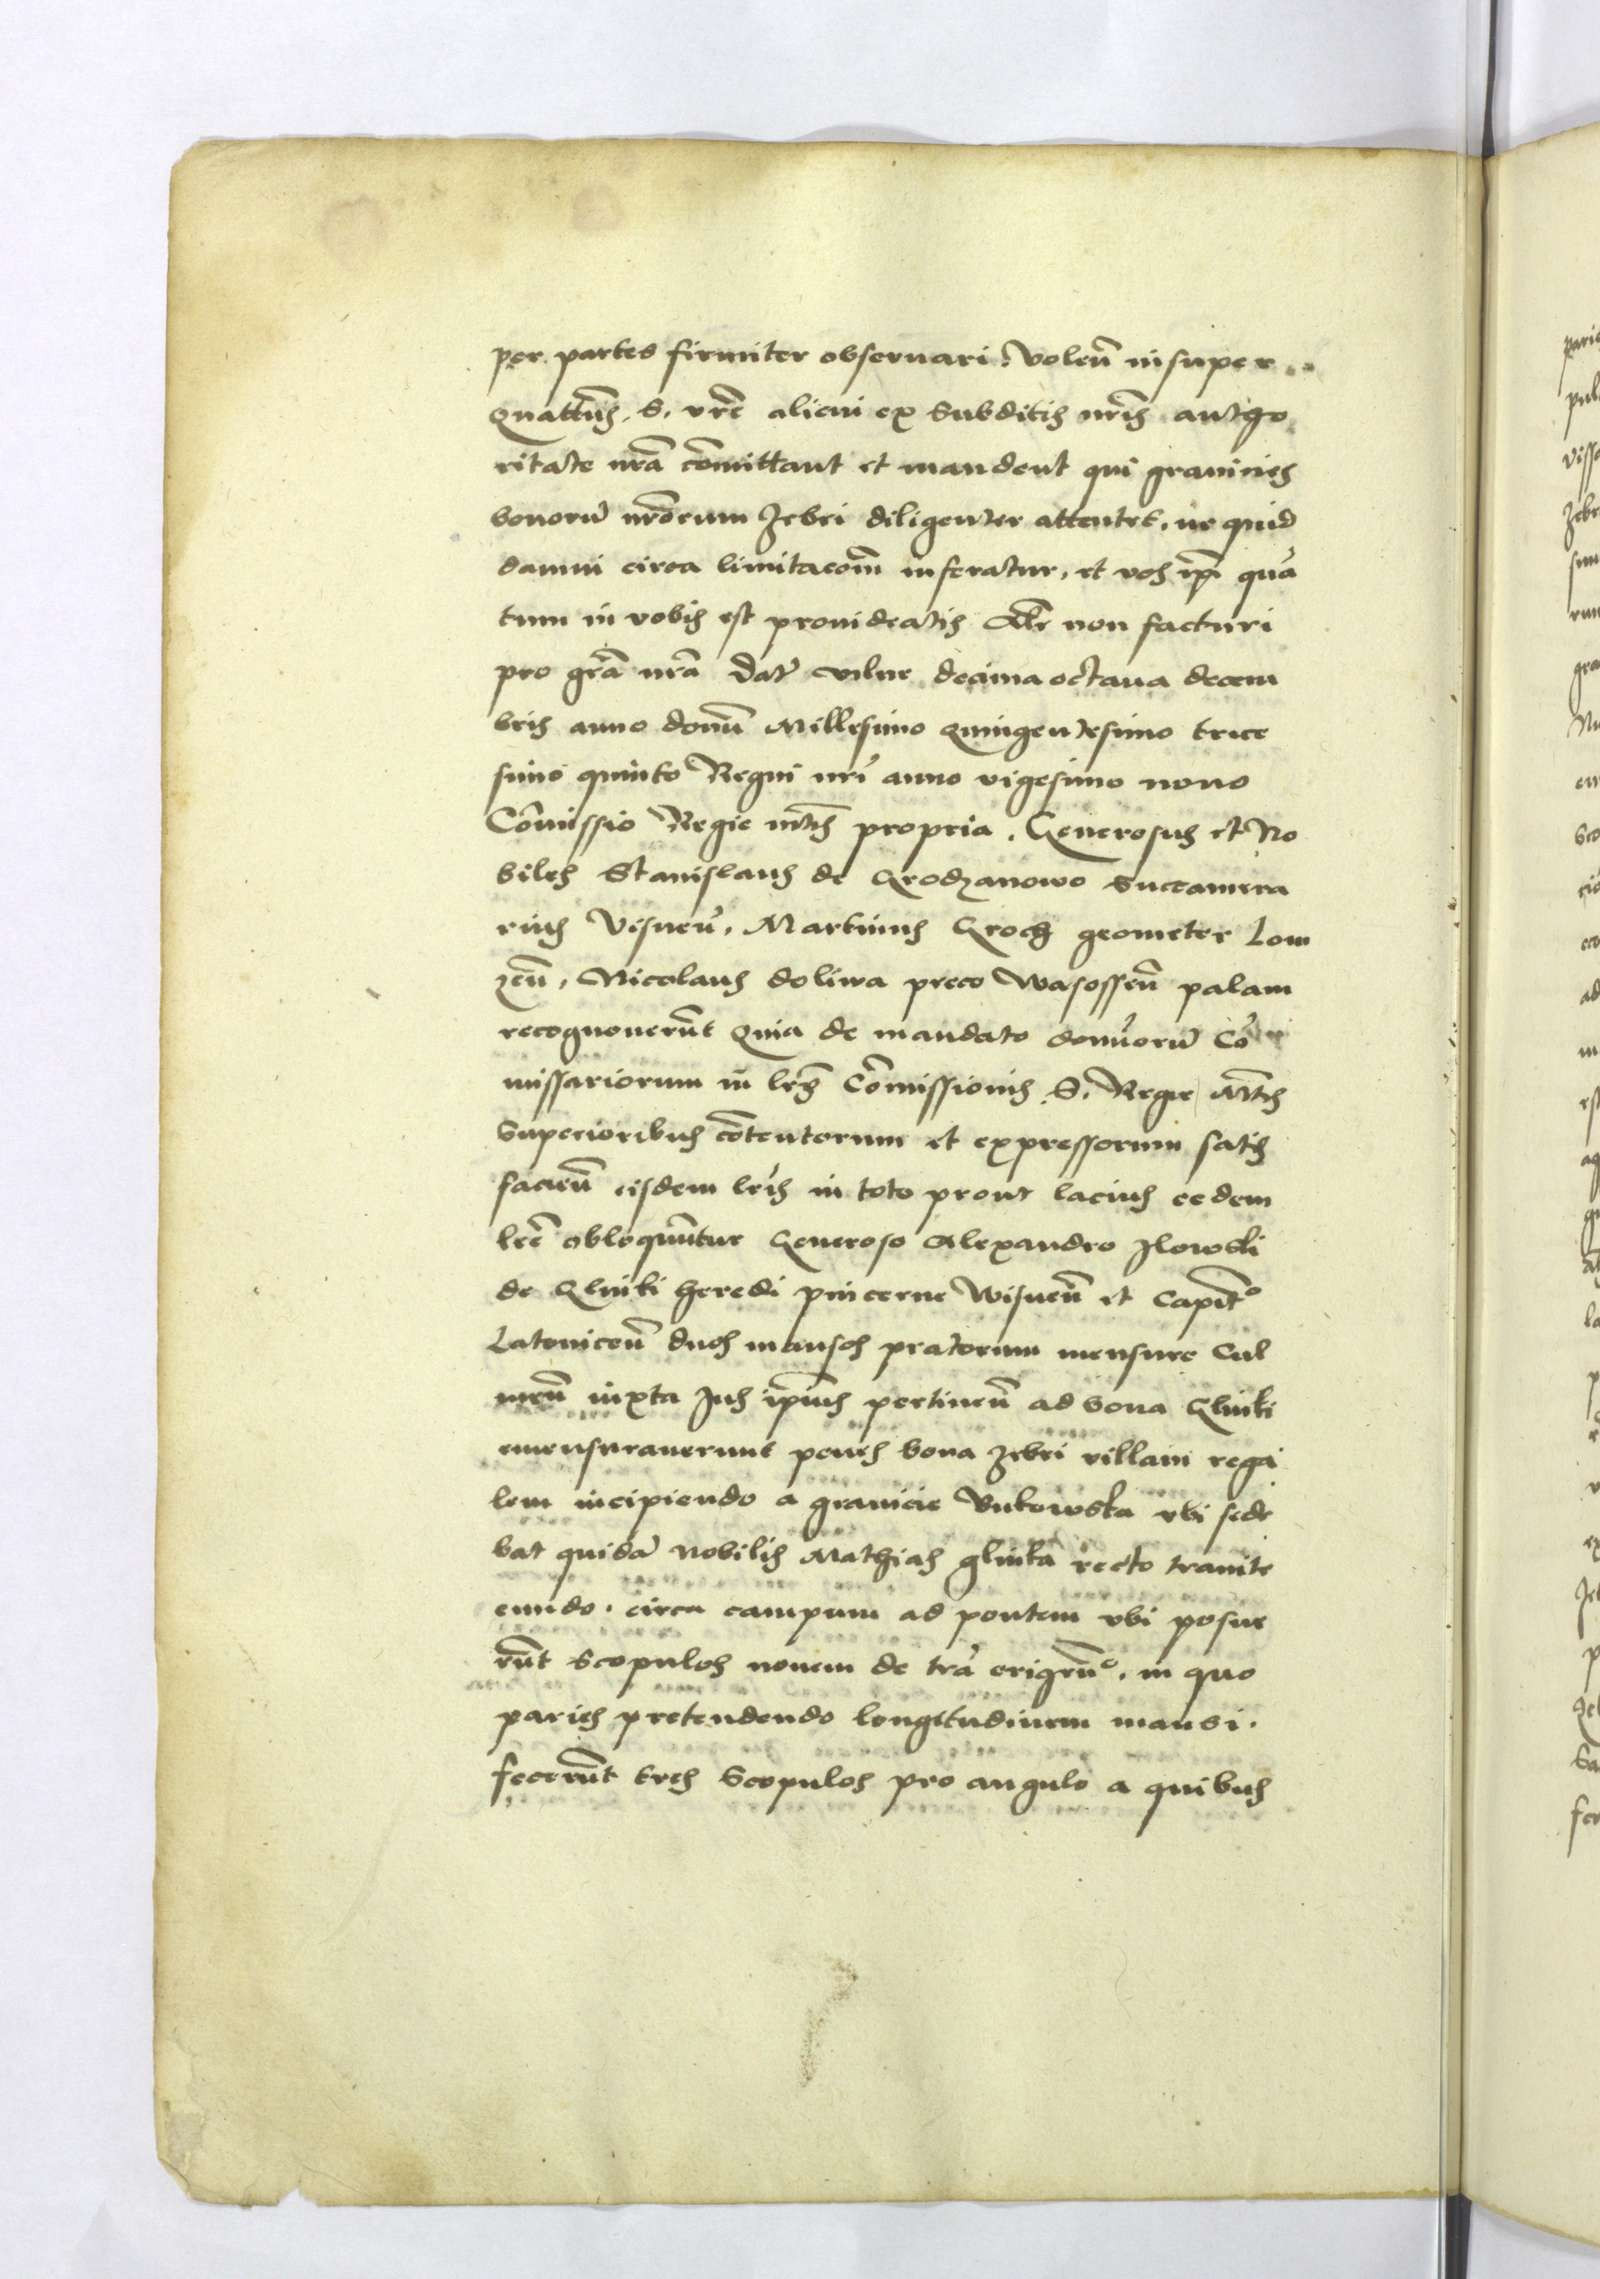 per partes firmiter observari. Volen̄ insuper
Quatten̄s S. vr̄e alicui ex Subditis nr̄is autho
ritate nr̄a com̄ittant et mandent qui granicies
bonorū nr̄orum Jebri diligenter attentet, ne quid
damni circa limitacom̄ inferatur, et vos ip̄i quā
tum in vobis est provideatis Alr̄ non facturi
pro gr̄a nr̄a Dat̄ vilne decima octava decem
bris anno domī Millesimo Quingentesimo trice
simo quinto Regni nr̄i anno vigesimo nono
Com̄issio Regie mt̄is propria. Generosus et No
biles Stanislaus de Grodzanowo Succamera
rius Visnen̄, Martinus Groch geometer Lom
zen̄, Nicolaus doliwa preco Wasossen̄ palam
recognoverūt Quia de mandato domīorū Co
missariorum in lr̄is Com̄issionis S. Regie Mt̄is
Superioribus cōtentorum et expressorum satis
facien̄ eisdem lr̄is in toto prout lacius eedem
lr̄e obloquūtur Generoso Alexandro Ilowski
de Glinki heredi pincerne Wisnen̄ et Capit̄o
Latovicen̄ duos mansos pratorum mensure Cul
men̄ iuxta Jus ip̄ius pertinen̄ ad bona Glinki
emensuraverunt penes bona Jebri villam rega
lem incipiendo a granicie Bukowska ubi sede
bat quidā Nobilis Mathias glinka recto tramite
eundo circa campum ad pontem ubi posue
rūt Scopulos novem de tr̄a erigen̄o, in quo
paries pretendendo longitudinem mansi
fecerūt tres Scopulos pro angulo a quibus